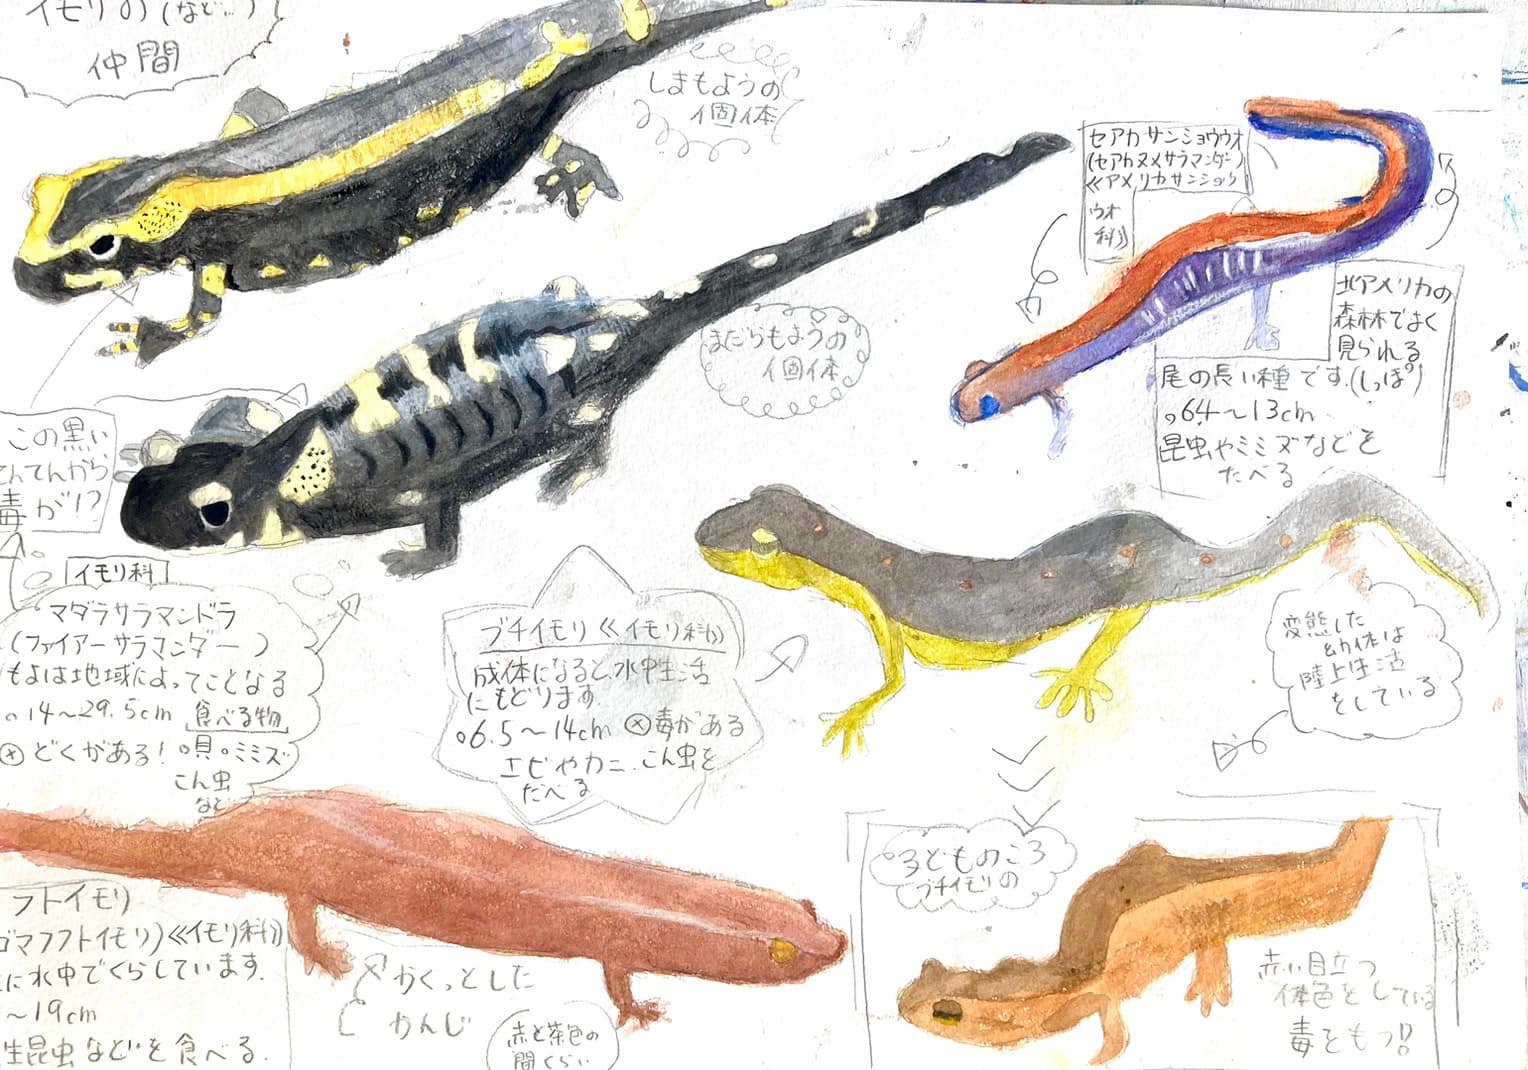 イモリの(など…)
仲間
しまもようの
個体
まだらもようの
個体
セアカサンショウウオ
(セアカヌメサラマンダー)
≪アメリカサンショウ
ウオ
科≫
北アメリカの
森林でよく
見られる
尾の長い種です.(しっぽ)
。6.4〜13cm
昆虫やミミズなどを
たべる
この黒い
てんてんから
毒が!?
イモリ科
マダラサラマンドラ
(ファイアーサラマンダー)
もようは地域によってことなる
。14〜29.5cm 食べる物
⊗どくがある! 。貝。ミミズ
こん虫
など
ブチイモリ≪イモリ科≫
成体になると、水中生活
にもどります
。6.5〜14cm ⊗毒がある
エビやカニ、こん虫を
たべる
変態した
幼体は
陸上生活
をしている
フトイモリ
ゴマフフトイモリ)≪イモリ科≫
に水中でくらしています.
〜19cm
生昆虫などを食べる.
かくっとした
かんじ
赤と茶色の
間くらい
。子どものころ
ブチイモリの
赤い目立つ
体色をしている
毒をもつ!!